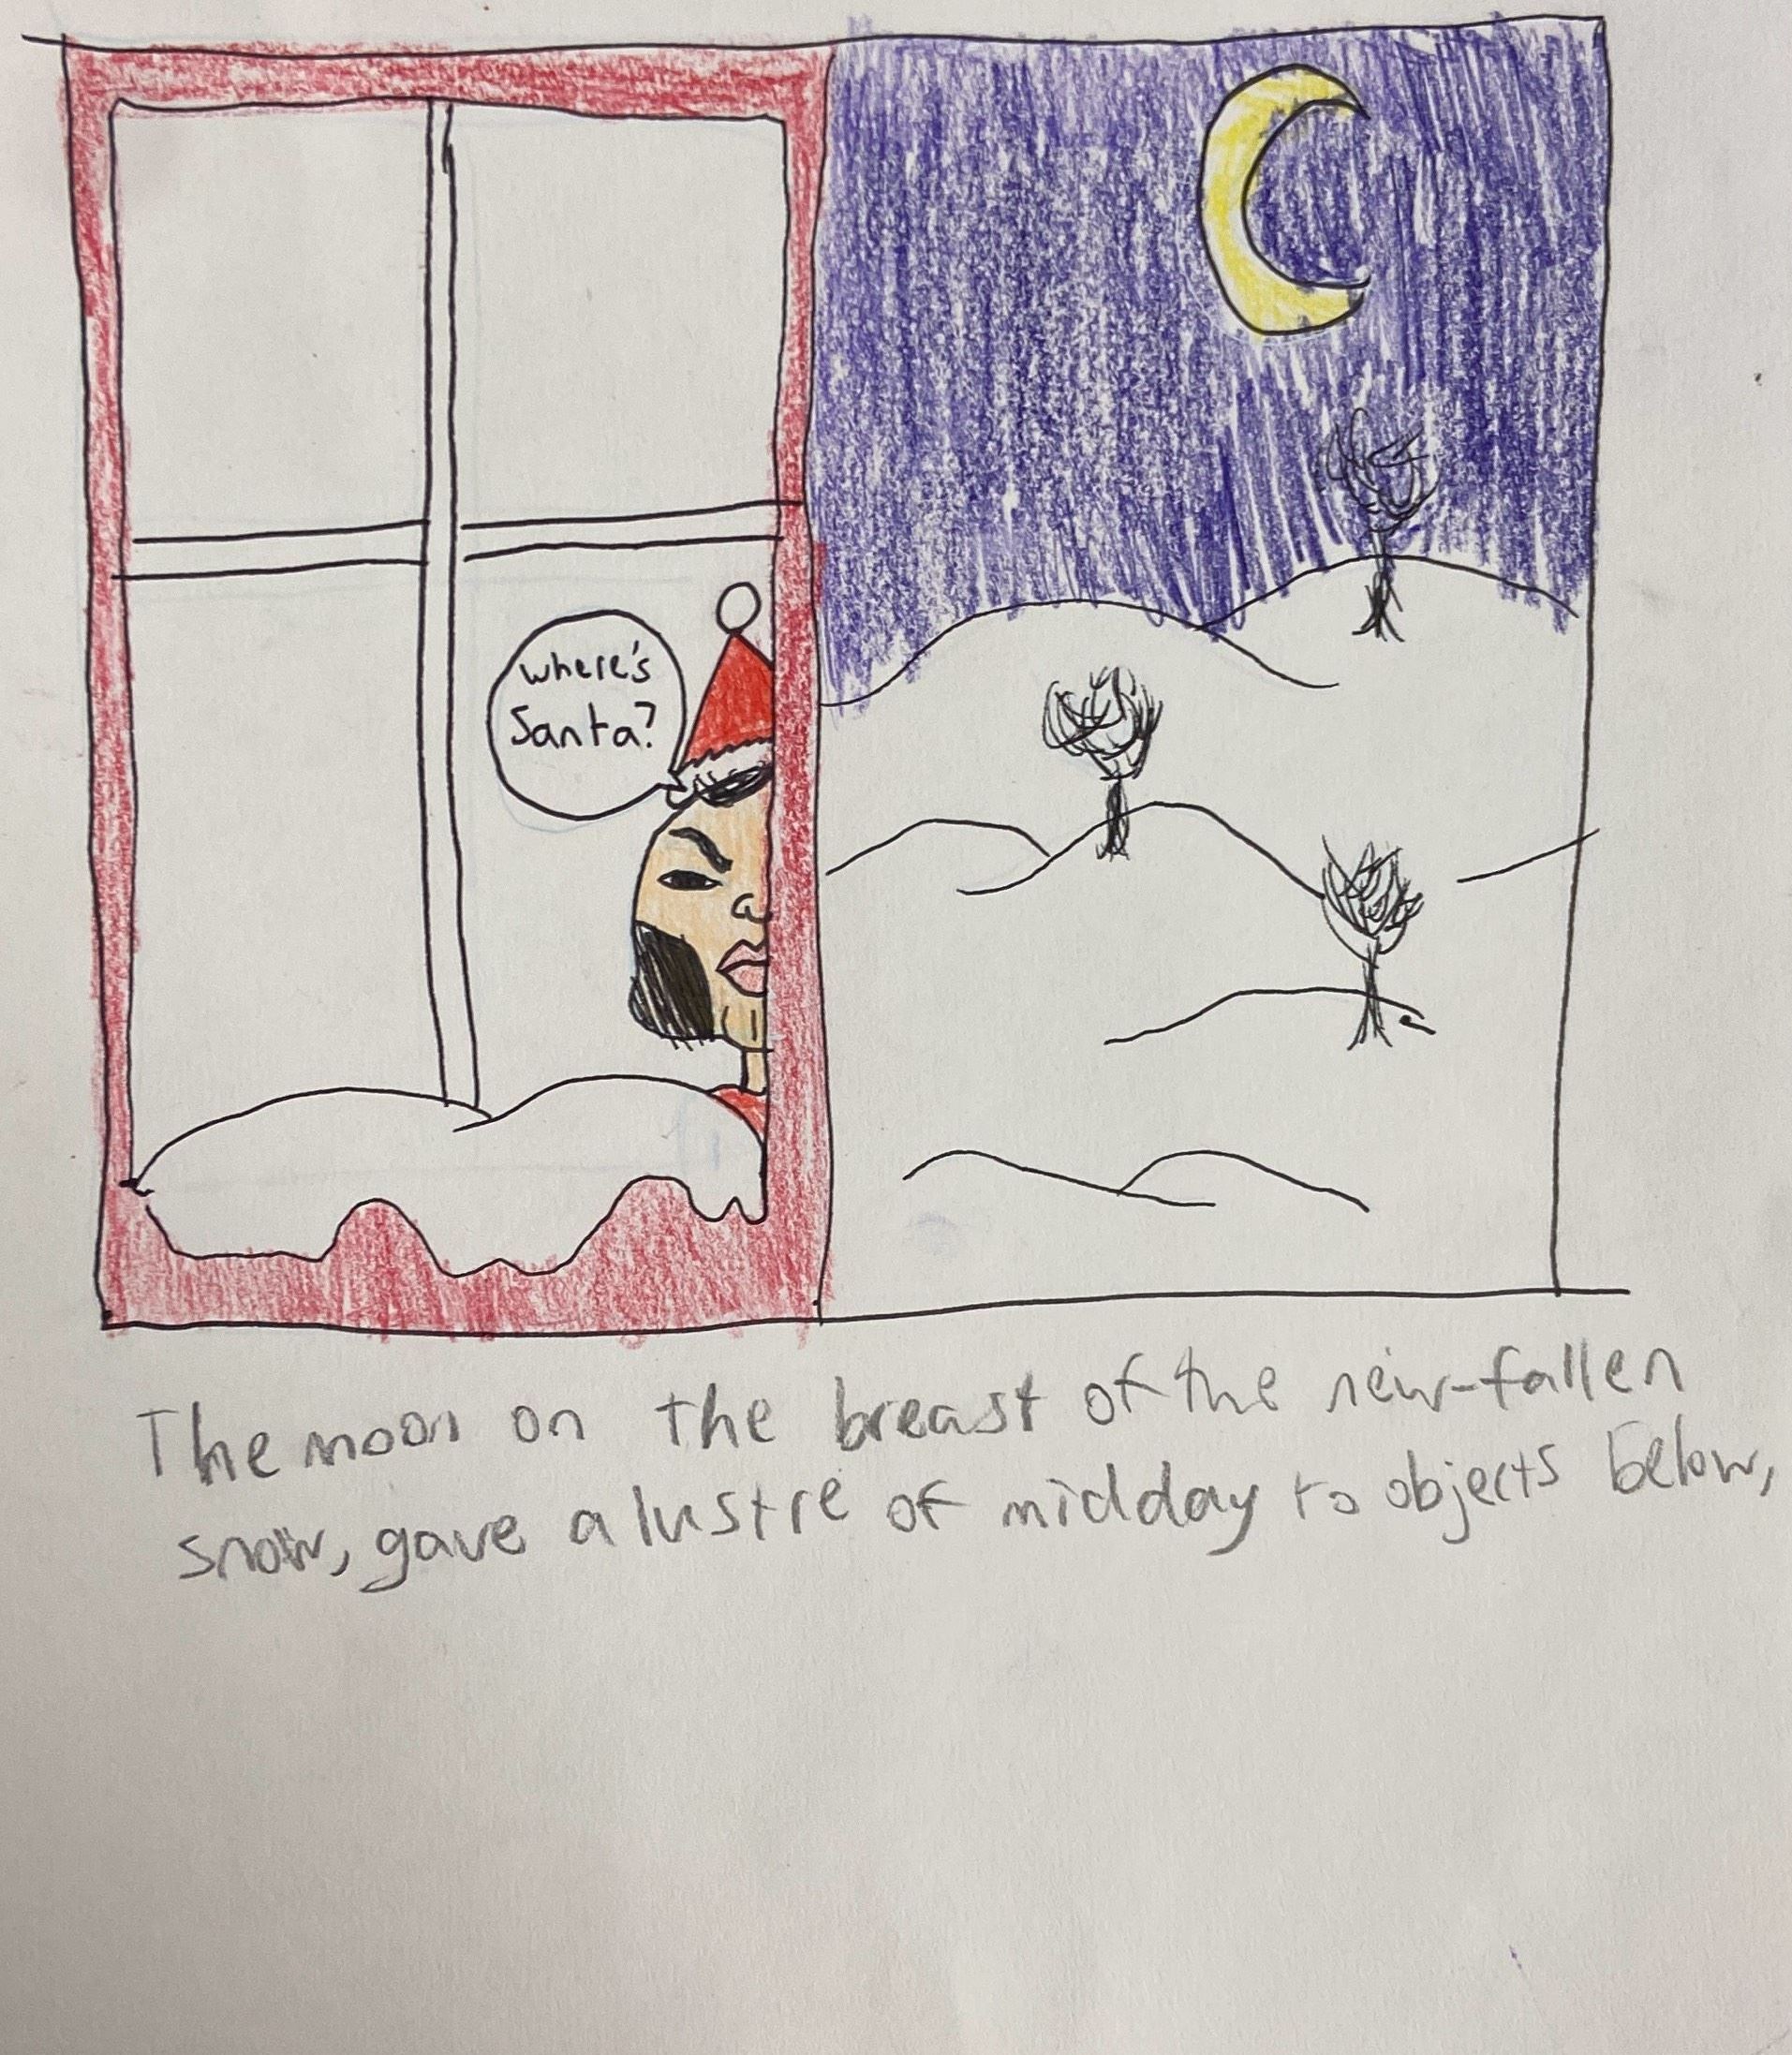 where's
Santa?
The moon on the breast of the new-fallen
snow, gave a lustre of midday to objects below,